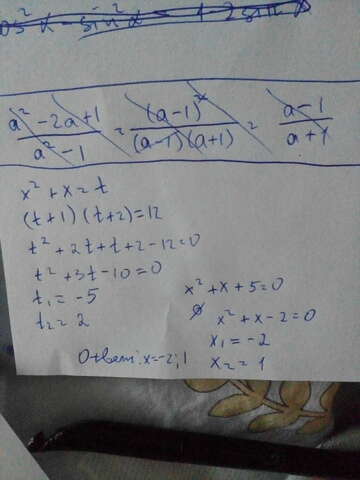 cos² α - sin² α = + 2 sin² α
a² - 2a + 1 / a² - 1 = (a-1)² / (a-1)(a+1) = a-1 / a+1
x² + x = t
(t+1)(t+2)=12
t² + 2t + t + 2 - 12 = 0
t² + 3t - 10 = 0
t₁ = -5
t₂ = 2
x² + x + 5 = 0
∅
x² + x - 2 = 0
x₁ = -2
x₂ = 1
Ответ: x = -2; 1